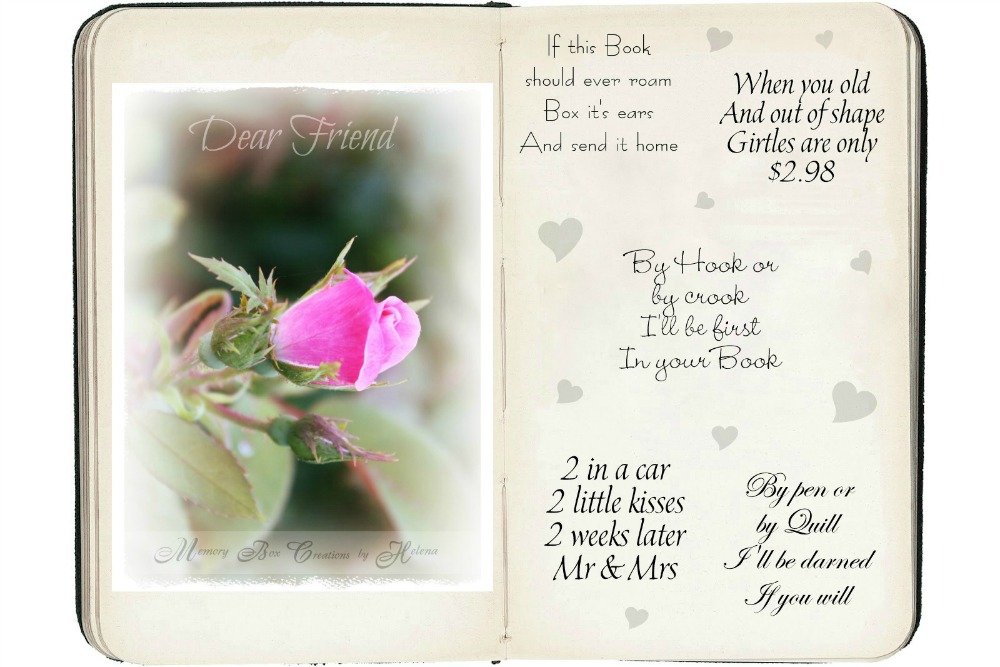 Dear Friend
Memory Box Creations by Helena
If this Book
should ever roam
Box it's ears
And send it home
When you old
And out of shape
Girtles are only
$2.98
By Hook or
by crook
I'll be first
In your Book
2 in a car
2 little kisses
2 weeks later
Mr & Mrs
By pen or
by Quill
I'll be darned
If you will